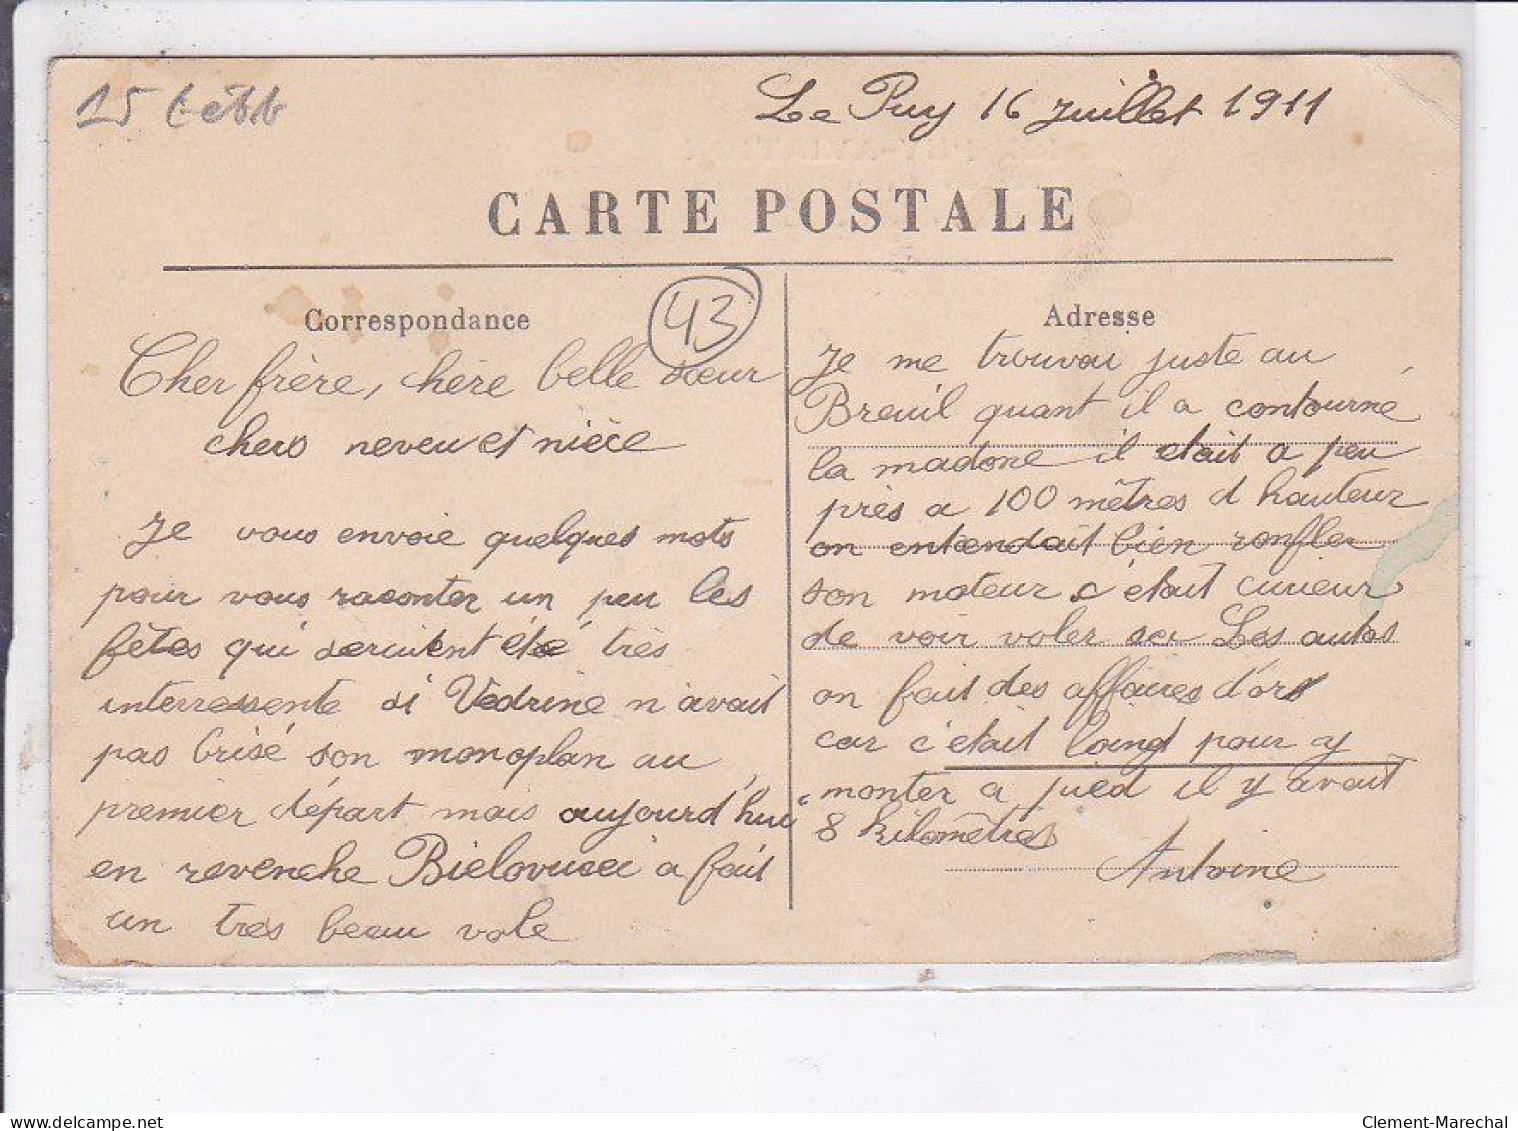 Le Puy 16 Juillet 1911
CARTE POSTALE
43
Correspondance
Cher frère, chère belle sœur
chers neveu et nièce
Je vous envoie quelques mots
pour vous raconter un peu les
fêtes qui seraient été très
interressente si Vedrine n'avait
pas brisé son monoplan au
premier départ mais aujourd'hui
en revenche Bielovusci a fait
un tres beau vole
Adresse
Je me trouvai juste au
Breuil quant il a contourné
la madone il etait a peu
près a 100 mètres d hauteur
on entendait bien ronfler
son moteur c'était curieux
de voir voler sa Les autos
on fait des affaires d'ors
car c'etait loingt pour y
monter a pied il y avait
8 kilomètres
Antoine
Clement-Marechal